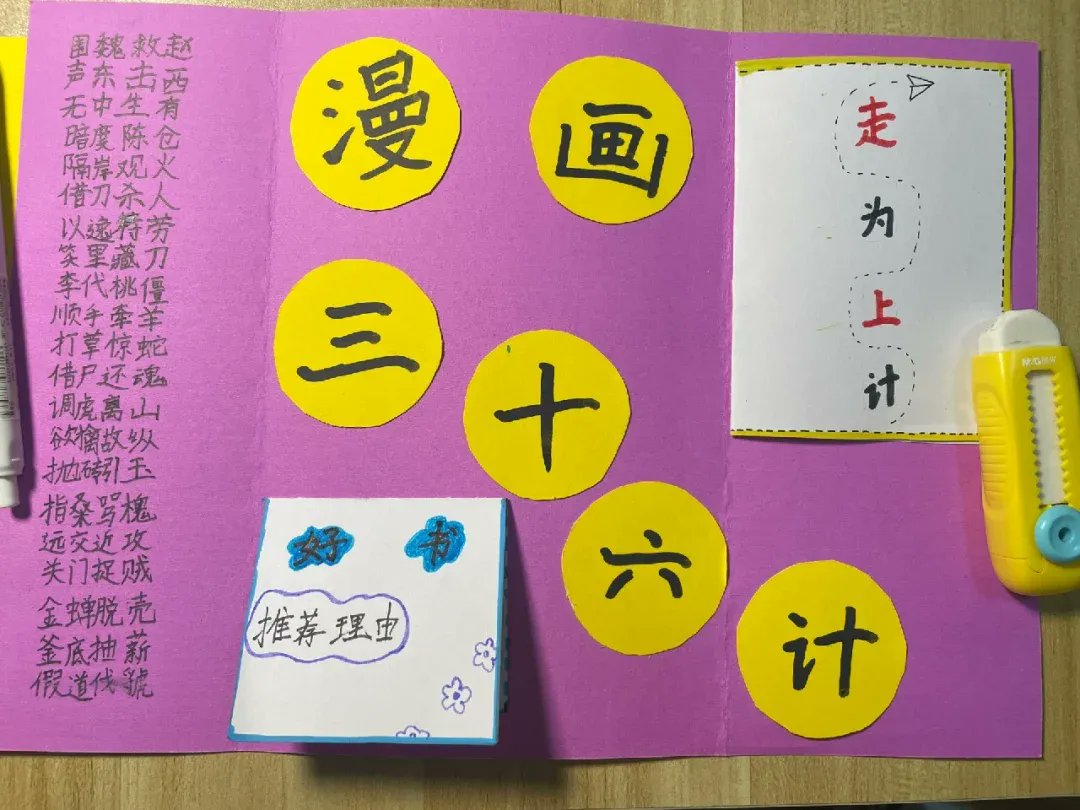 围魏救赵
声东击西
无中生有
暗度陈仓
隔岸观火
借刀杀人
以逸待劳
笑里藏刀
李代桃僵
顺手牵羊
打草惊蛇
借尸还魂
调虎离山
欲擒故纵
抛砖引玉
指桑骂槐
远交近攻
关门捉贼
金蝉脱壳
釜底抽薪
假道伐虢
漫画
三十六计
好书
推荐理由
走为上计
M&G